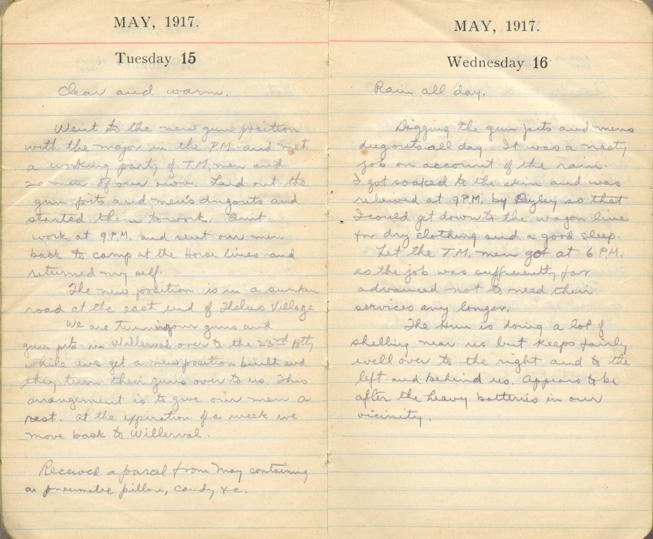 MAY, 1917.
Tuesday 15
Clear and warm.
Went to the new gun position
with the major in the P.M. and met
a working party of T.M. men and
20 men of our own. Laid out the
gun pits and men's dugouts and
started them to work. Quit
work at 9 P.M. and sent our men
back to camp at the Horse lines and
returned my self.
The new position is in a sunken
road at the east end of Thelus Village
We are turning our guns and
gun pits in Willerval over to the 23rd Bty
while we get a new position built and
they turn their guns over to us. This
arrangement is to give our men a
rest. At the expiration of a week we
move back to Willerval.
Received a parcel from May containing
a pneumatic pillow, candy &c.
MAY, 1917.
Wednesday 16
Rain all day.
Digging the gun pits and mens
dugouts all day. It was a nasty
job on account of the rain.
I got soaked to the skin and was
relieved at 9 P.M. by so that
I could get down to the wagon line
for dry clothing and a good sleep.
Let the T.M. men go at 6 P.M.
as the job was sufficiently far
advanced not to need their
services any longer.
The Hun is doing a lot of
shelling near us but keeps fairly
well over to the right and to the
left and behind us. Appears to be
after the heavy batteries in our
vicinity.